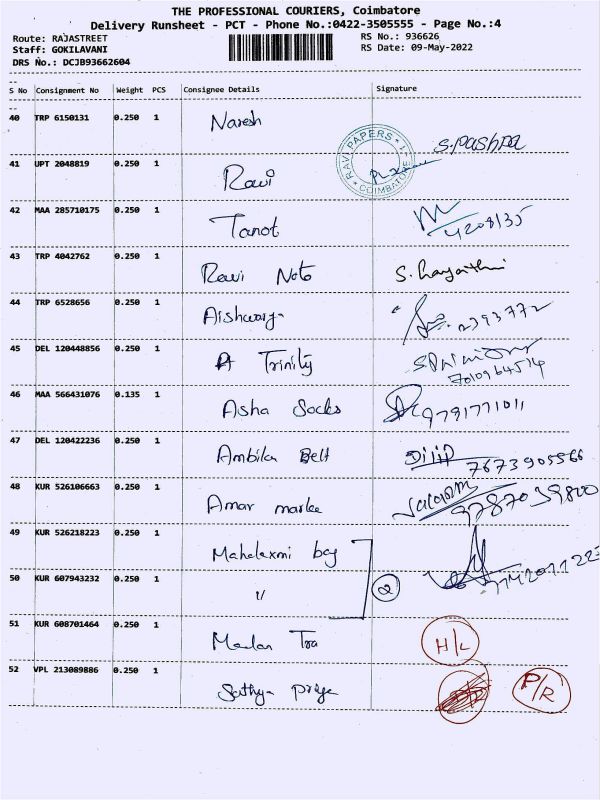 THE PROFESSIONAL COURIERS, Coimbatore
Delivery Runsheet - PCT - Phone No.:0422-3505555 - Page No.:4
Route: RAJASTREET RS No.: 936626
Staff: GOKILAVANI RS Date: 09-May-2022
DRS No.: DCJB93662604
S No Consignment No Weight PCS Consignee Details Signature
40 TRP 6150131 0.250 1 Naresh S.pushpa
RAVI PAPERS COIMBATORE
41 UPT 2048819 0.250 1 Ravi
42 MAA 285710175 0.250 1 Tanot 4208135
43 TRP 4042762 0.250 1 Ravi Noto S.
44 TRP 6528656 0.250 1 Aishwarya 2393772
45 DEL 120448856 0.250 1 A Trinity
7010964514
46 MAA 566431076 0.135 1 Asha Socks 9791771011
47 DEL 120422236 0.250 1 Ambika Belt Dilip
7673905566
48 KUR 526106663 0.250 1 Amar marke 9787039800
49 KUR 526218223 0.250 1 Mahalaxmi bag
50 KUR 607943232 0.250 1 〃 2
51 KUR 608701464 0.250 1 Madan Tra H/L
52 VPL 213089886 0.250 1 Sathya Priya P/R